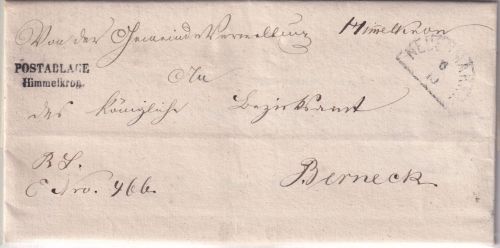 Von der Gemeinde Verwaltung Himmelkron
POSTABLAGE
Himmelkron.
An
das Königliche Bezirksamt
R. S.
E Nro. 466.
Berneck.